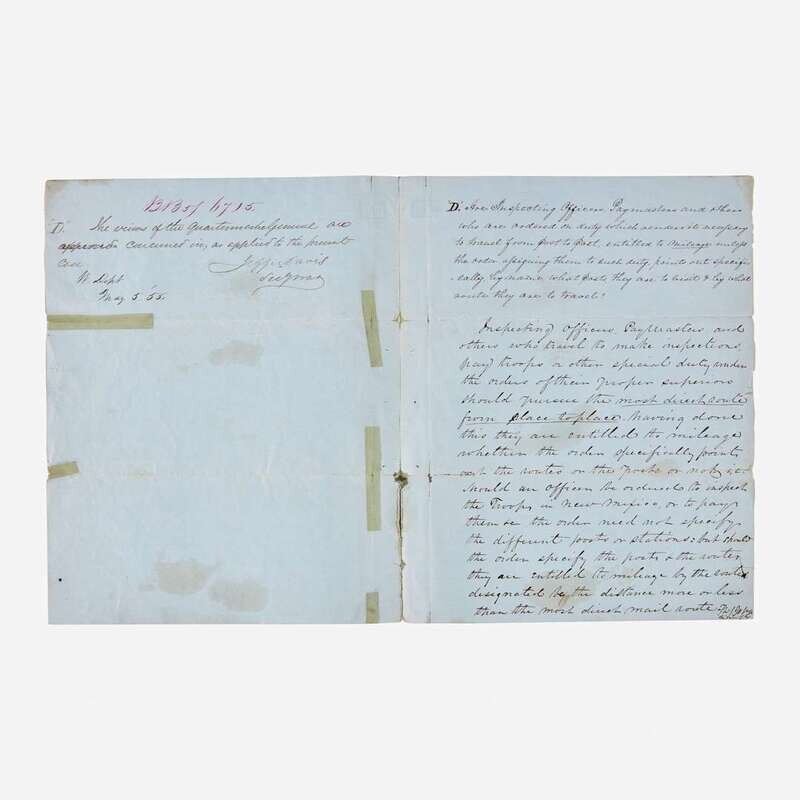 "D". The views of the Quartermaster General are
approved concurred in, as applied to the present
Case
Jeffn Davis
Sec of War
W. Dept
May 5 '55.
D. Are Inspecting Officers, Paymasters and others
who are ordered on duty which renders it necessary
to travel from Post to Post, entitled to mileage unless
the order assigning them to such duty, points out specifi
cally by name what Posts they are to visit & by what
routes they are to travel?
Inspecting Officers Paymasters and
others who travel to make inspections,
pay troops or other special duty under
the orders of their proper superiors
should pursue the most direct route
from place to place. having done
this they are entitled to mileage
whether the order specifically points
out the routes or the posts or not,
Should an officer be ordered to inspect
the Troops in new Mexico, or to pay
them the order need not specify
the different posts or stations: but should
the order specify the posts & the routes
they are entitled to mileage by the route
designated be the distance more or less
than the most direct mail route